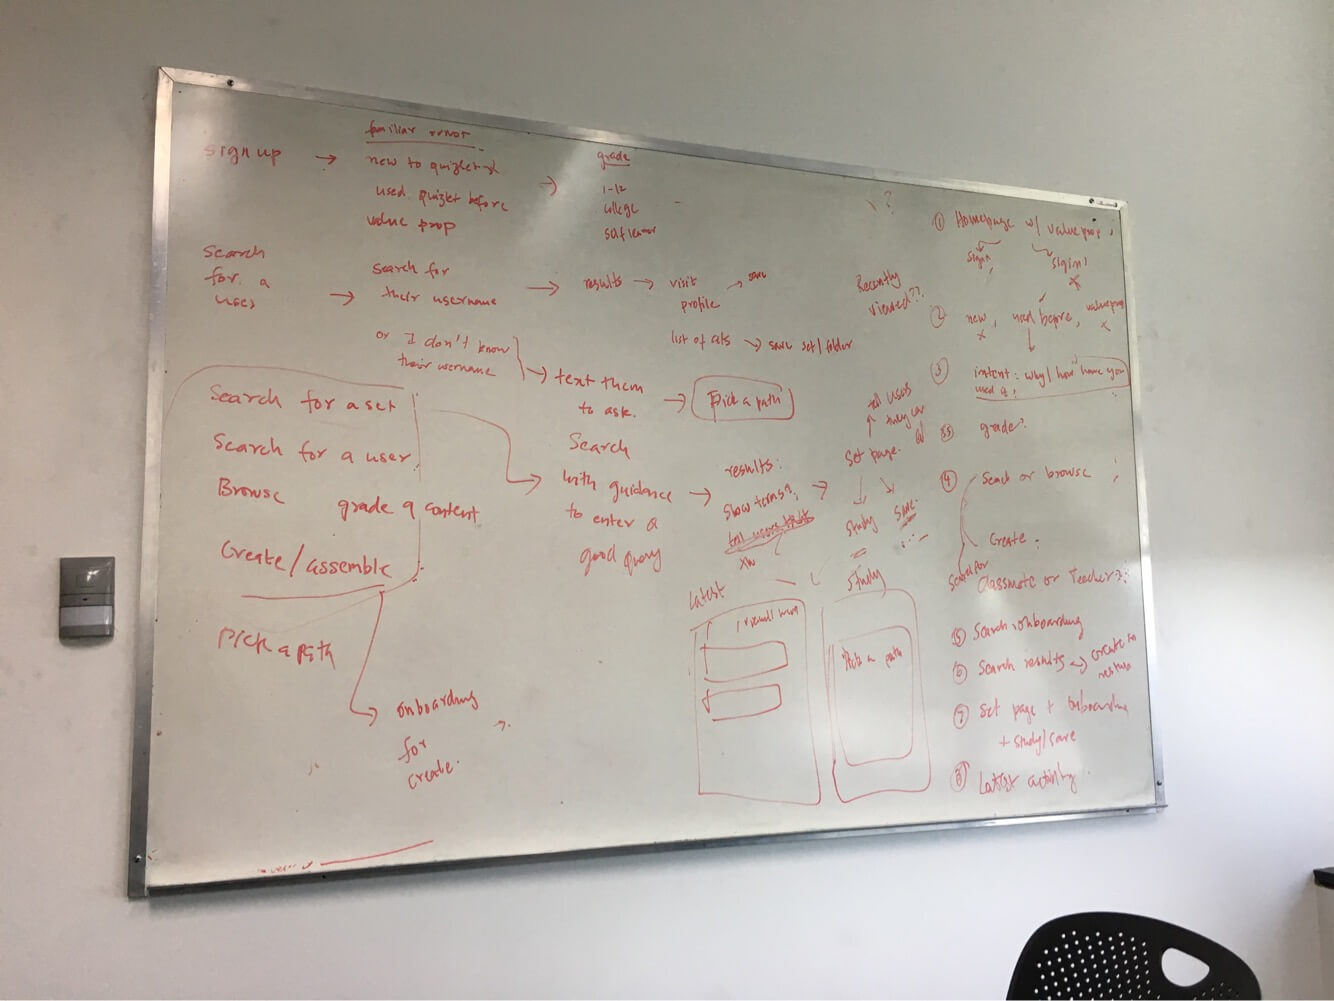 sign up →
familiar or not
new to quizlet
used quizlet before
value prop
→
grade
1-12
college
self learner
Search
for a
→
search for
their username
→ results → visit
profile
→ save
list of sets → save set/folder
or I don't know
their username
→ text them
to ask.
→ Pick a path
Recently
viewed??
?
Search for a set
Search for a user
Browse grade & content
Create/assemble
Pick a path
onboarding
for
create.
→
Search
with guidance
to enter a
good query
→
results:
show terms?,
→
Set page.
tell users
they can
study save
Latest
Study
Pick a path
① Homepage w/ value prop
signin
② new, used before, value prop
x x
③ intent: why/how have you
used it?
grade?
④ Search or browse
Create
Search for
Classmate or Teacher?
⑤ Search onboarding
⑥ Search results → create in
⑦ Set page + onboarding
+ study/save
⑧ Latest activity